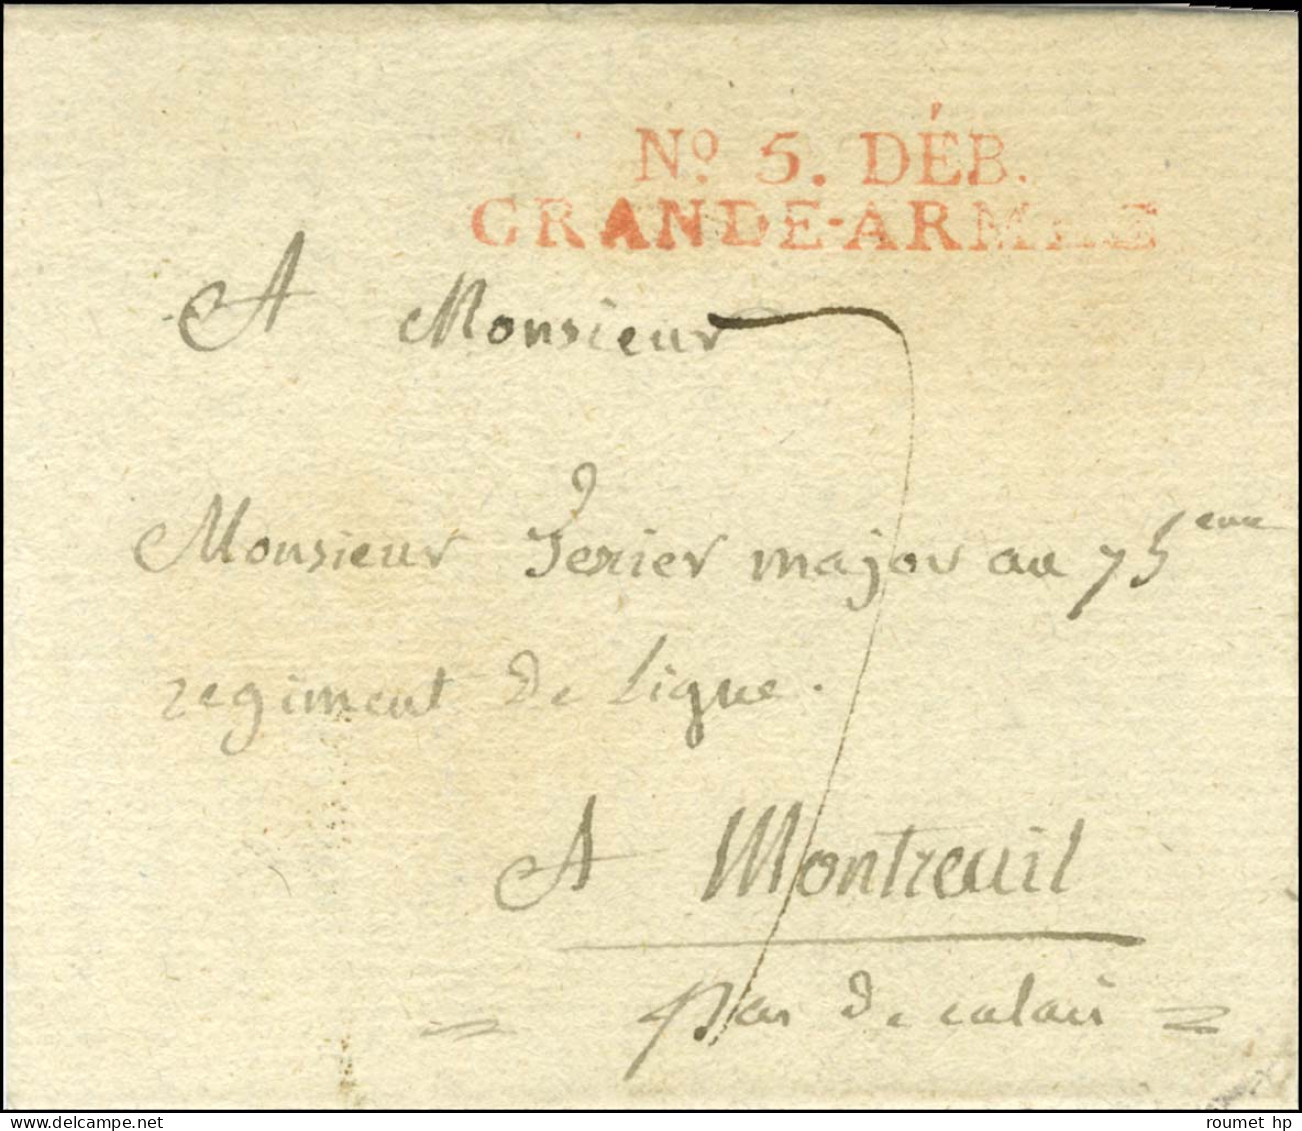 Nº 5. DÉB.
GRANDE-ARMÉE
A Monsieur
7
Monsieur major au 75eme
regiment de Ligne.
A Montreuil
pas de calais
roumet hp